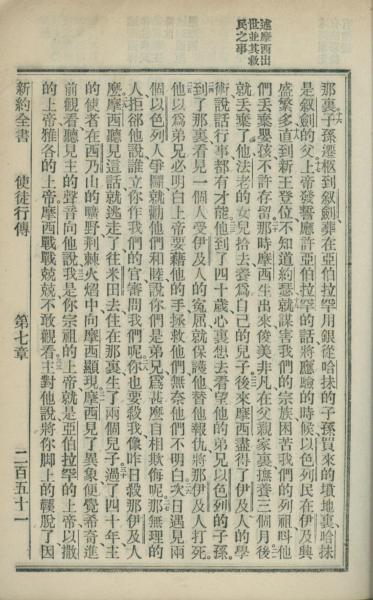 述摩西出
世並其救
民之事
那裏子孫遷柩到叙劍葬在亞伯拉罕用銀從哈抹的子孫買來的墳地裏哈抹
是叙劍的父上帝發誓應許亞伯拉罕的話將應驗的時候以色列民在伊及興
盛繁多直到新王登位不知道約瑟就謀害我們的宗族困苦我們的列祖呌他
們丟棄嬰孩不許存留那時摩西生出來俊美非凡在父親家裏撫養三個月後
就丟棄了他法老的女兒拾去養爲自己的兒子後來摩西盡得了伊及人的學
術說話行事都有才能他到了四十歲心裏想去看望他的弟兄以色列的子孫
到了那裏看見一個人受伊及人的寃屈就保護他替他報仇將那伊及人打死
他以爲弟兄必明白上帝要藉他的手拯救他們無奈他們不明白次日遇見兩
個以色列人爭鬬就勸他們和睦說你們是弟兄爲甚麽自相欺侮呢那無理的
人拒郤他說誰立你作我們的官審問我們呢你也要殺我像昨日殺那伊及人
麽摩西聽見這話就逃走了往米田去住在那裏生了兩個兒子過了四十年主
的使者在西乃山的曠野荊棘火熖中向摩西顯現摩西見了異象便覺希奇進
前觀看聽見主的聲音向他說我是你宗祖的上帝就是亞伯拉罕的上帝以撒
的上帝雅各的上帝摩西戰戰兢兢不敢觀看主對他說將你脚上的鞾脫了因
新約全書 使徒行傳 第七章 二百五十一